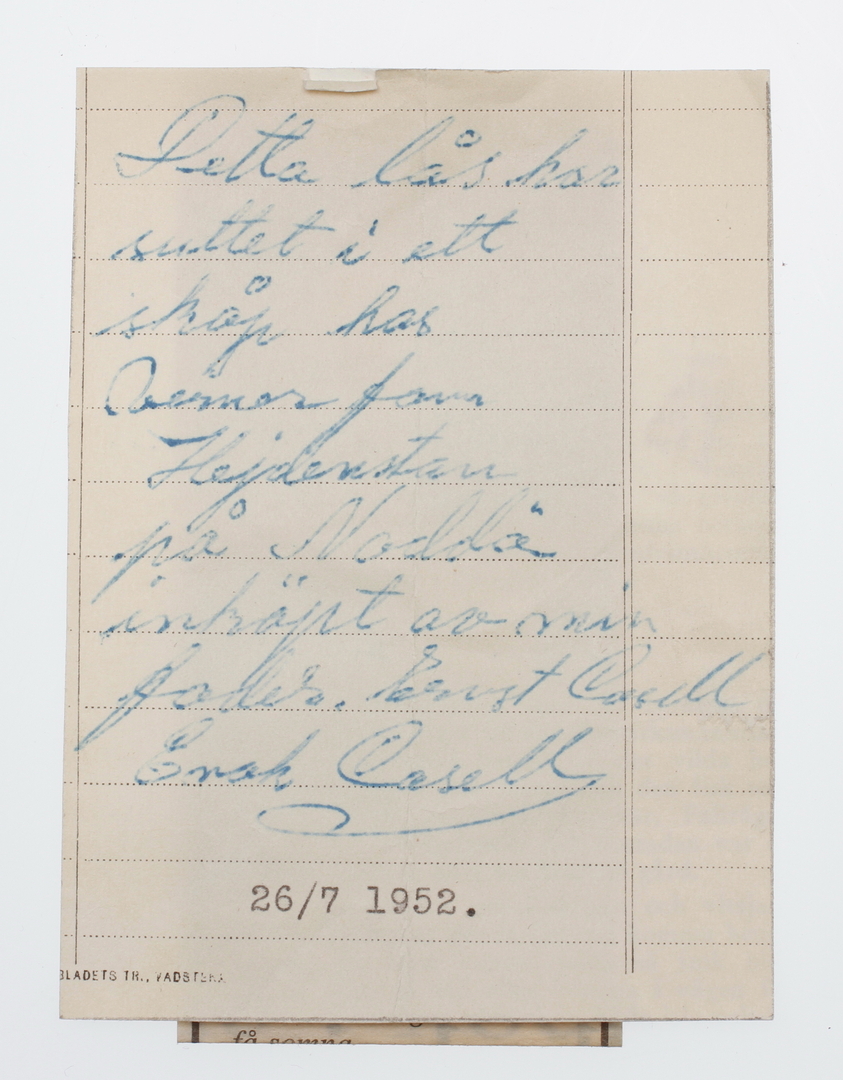 Detta lås har
suttet i ett
skåp hos
Verner fovn
Hejdenstam
på Noddö
inköpt av min
fader. Ernst Casell
Enok Casell
26/7 1952.
BLADETS TR., VADSTENA
få somna